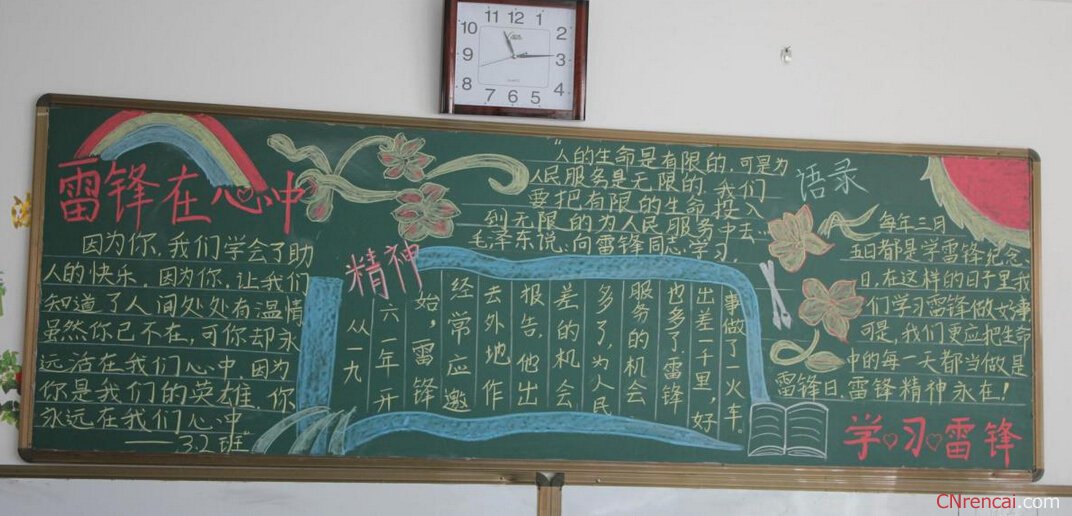 11 12 1
10 2
9 3
8 4
7 6 5
雷锋在心中
因为你，我们学会了助
人的快乐。因为你，让我们
知道了人间处处有温情
虽然你已不在，可你却永
远活在我们心中 因为
你是我们的英雄、你
永远在我们心中
——3.2班
精神
从一九
六一年开
始，雷锋
经常应邀
去外地作
报告，他出
差的机会
多了，为人民
服务的机会
也多了，雷锋
出差一千里，好
事做了一火车。
"人的生命是有限的，可是为
人民服务是无限的 我们
要把有限的生命投入
到无限的为人民服务中去…
毛泽东说：向雷锋同志学习，
语录
每年三月
五日都是学雷锋纪念
日，在这样的日子里我
们学习雷锋做好事
可是，我们更应把生命
中的每一天都当做是
雷锋日，雷锋精神永在！
学习雷锋
CNrencai.com